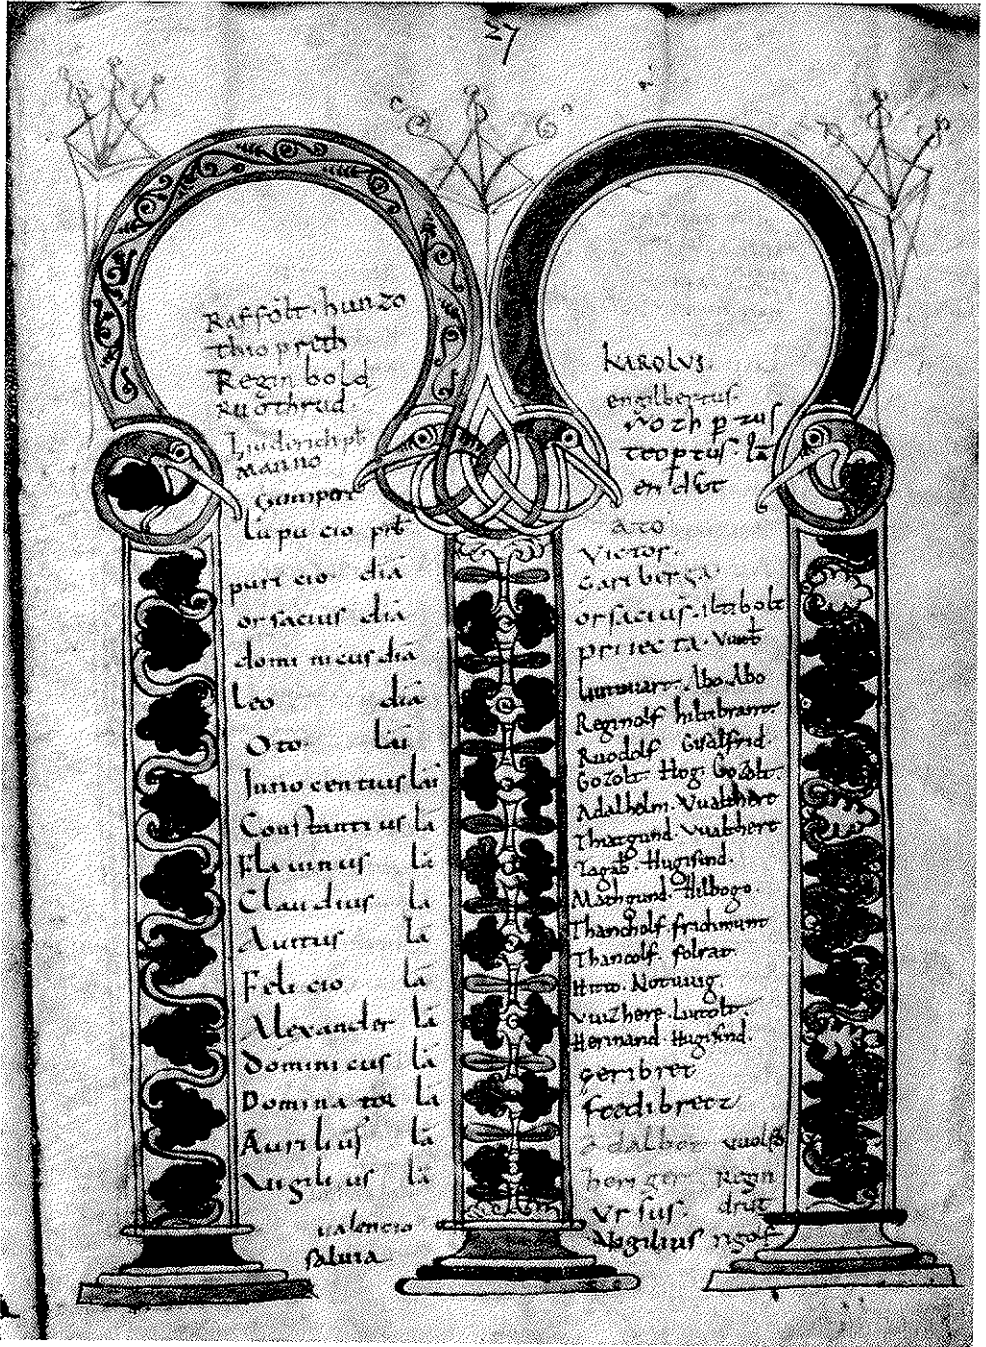 27
Raffolt · hunzo
thio preth
Regin bold
Ruothrud ·
Manno
Gumpret
Lupu cio prb
puri cio diā
orsacius diā
domi nicus diā
Leo diā
Oto · lāi
Inno centius lāi
Constanti us lā
Flauinus lā
Claudius lā
Auitus lā
Feli cio lā
Alexander lā
Domini cus lā
Domina tor lā
Aurilius lā
Uigili us lā
ualencio
Saluia
KAROLVS ·
engilbertus ·
teoptus · lā
Victor ·
Gariberga ·
orsacius · iltibolt
proiecta · Vuolt
Abo · Abo
Reginolf hiltibrant
Ruodolf Gisalfrid ·
Gozolt · Hog · Gozolt ·
Adalhelm · Vualthert
Thiotgund · Vualthert
Hugisind ·
Mathgund · Hilbogo ·
Thancholf · fridimunt
Thancolf · folrat ·
Hitto · Notuuig ·
Vuizhere · Liutolt ·
Hermand · Hugisind ·
geribret
adalber vuolf
heri ger Regin
Vrsus · drut
Uigilius rigolf